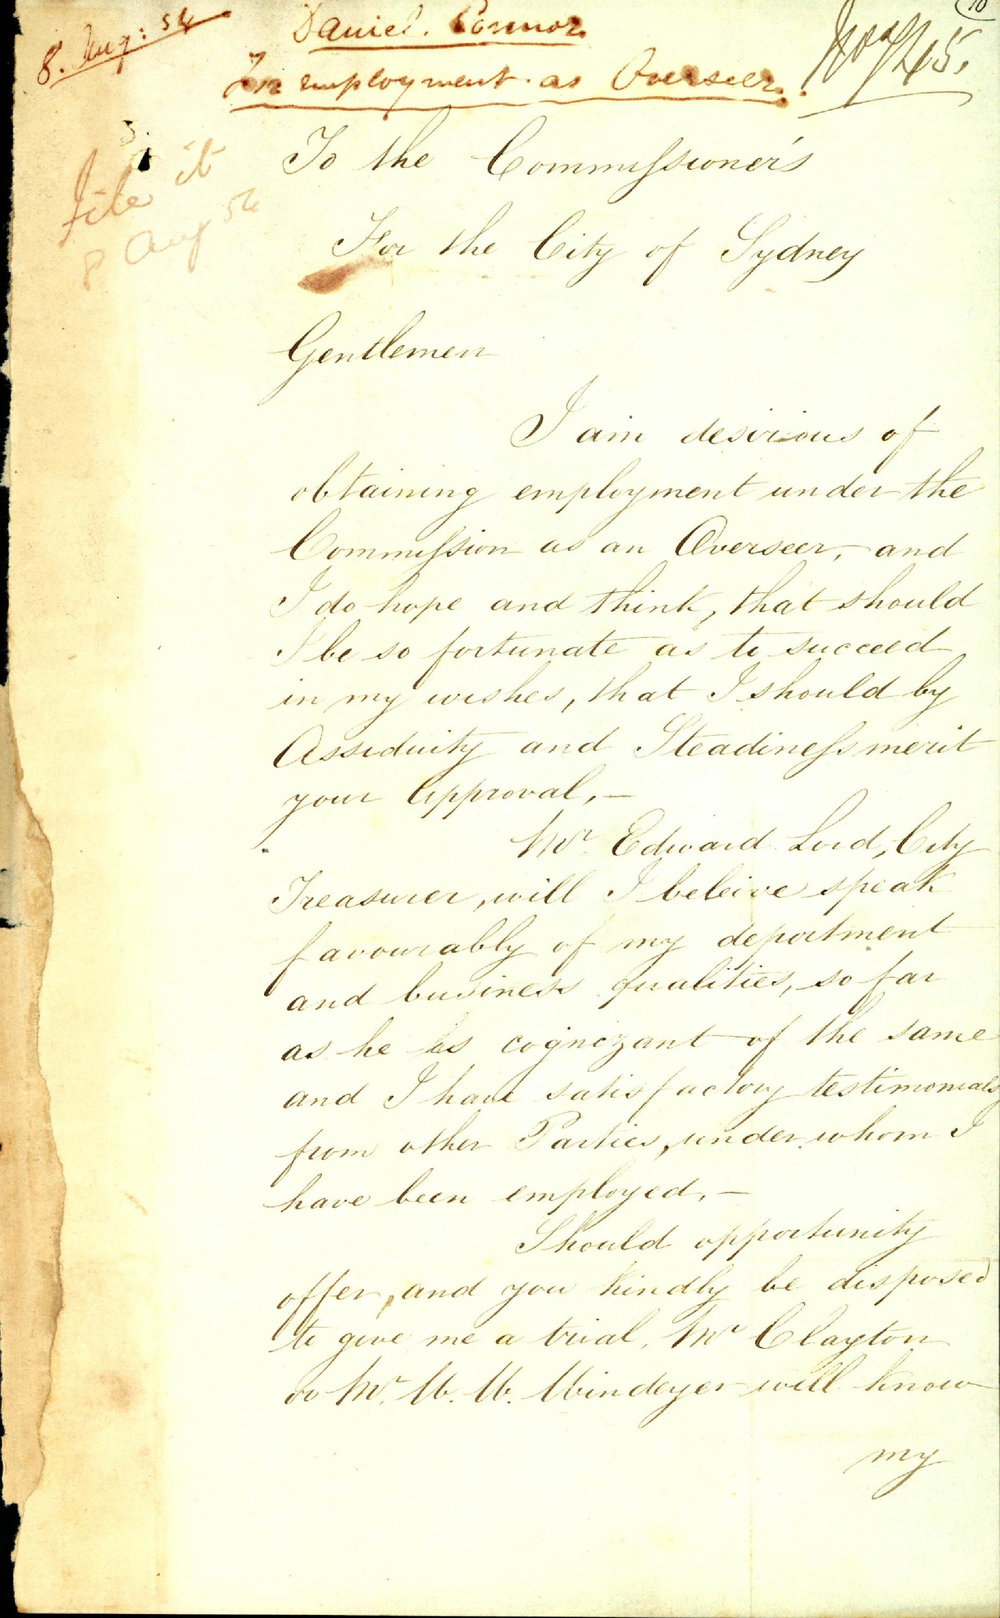 8. Aug: 54
Daniel. Connor
For employment as Overseer.
10
File it
8 Aug 54
To the Commissioner's
For the City of Sydney
Gentlemen
I am desirious of
obtaining employment under the
Commission as an Overseer, and
I do hope and think, that should
I be so fortunate as to succeed
in my wishes, that I should by
Assiduity and Steadiness merit
your Approval, —
Mr. Edward Lord, City
Treasurer, will I beleive speak
favourably of my deportment
and business qualities, so far
as he is cognozant of the same
and I have satisfactory testimonials
from other Parties, under whom I
have been employed, —
Should opportunity
offer, and you kindly be disposed
to give me a trial, Mr Clayton
or Mr. W. W. Windeyer will know
my